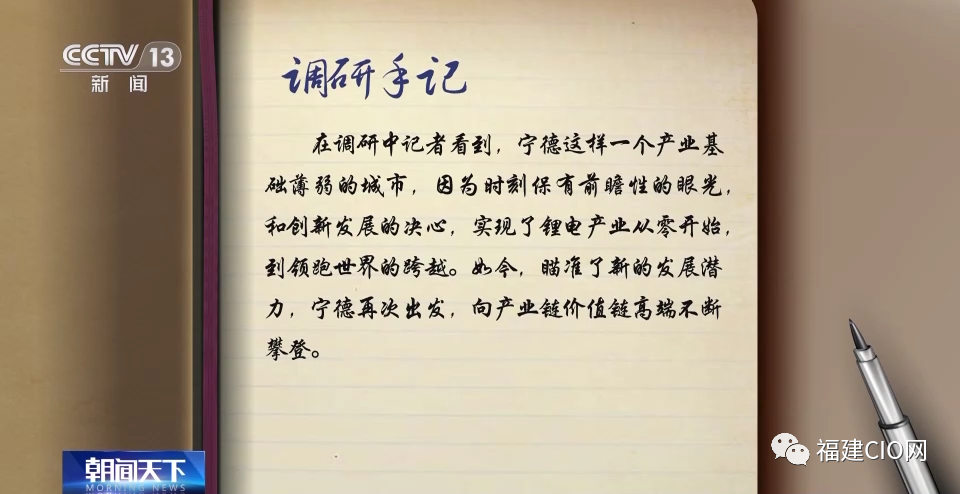 CCTV 13
新闻
调研手记
在调研中记者看到，宁德这样一个产业基
础薄弱的城市，因为时刻保有前瞻性的眼光，
和创新发展的决心，实现了锂电产业从零开始，
到领跑世界的跨越。如今，瞄准了新的发展潜
力，宁德再次出发，向产业链价值链高端不断
攀登。
朝闻天下
MORNING NEWS
福建CIO网